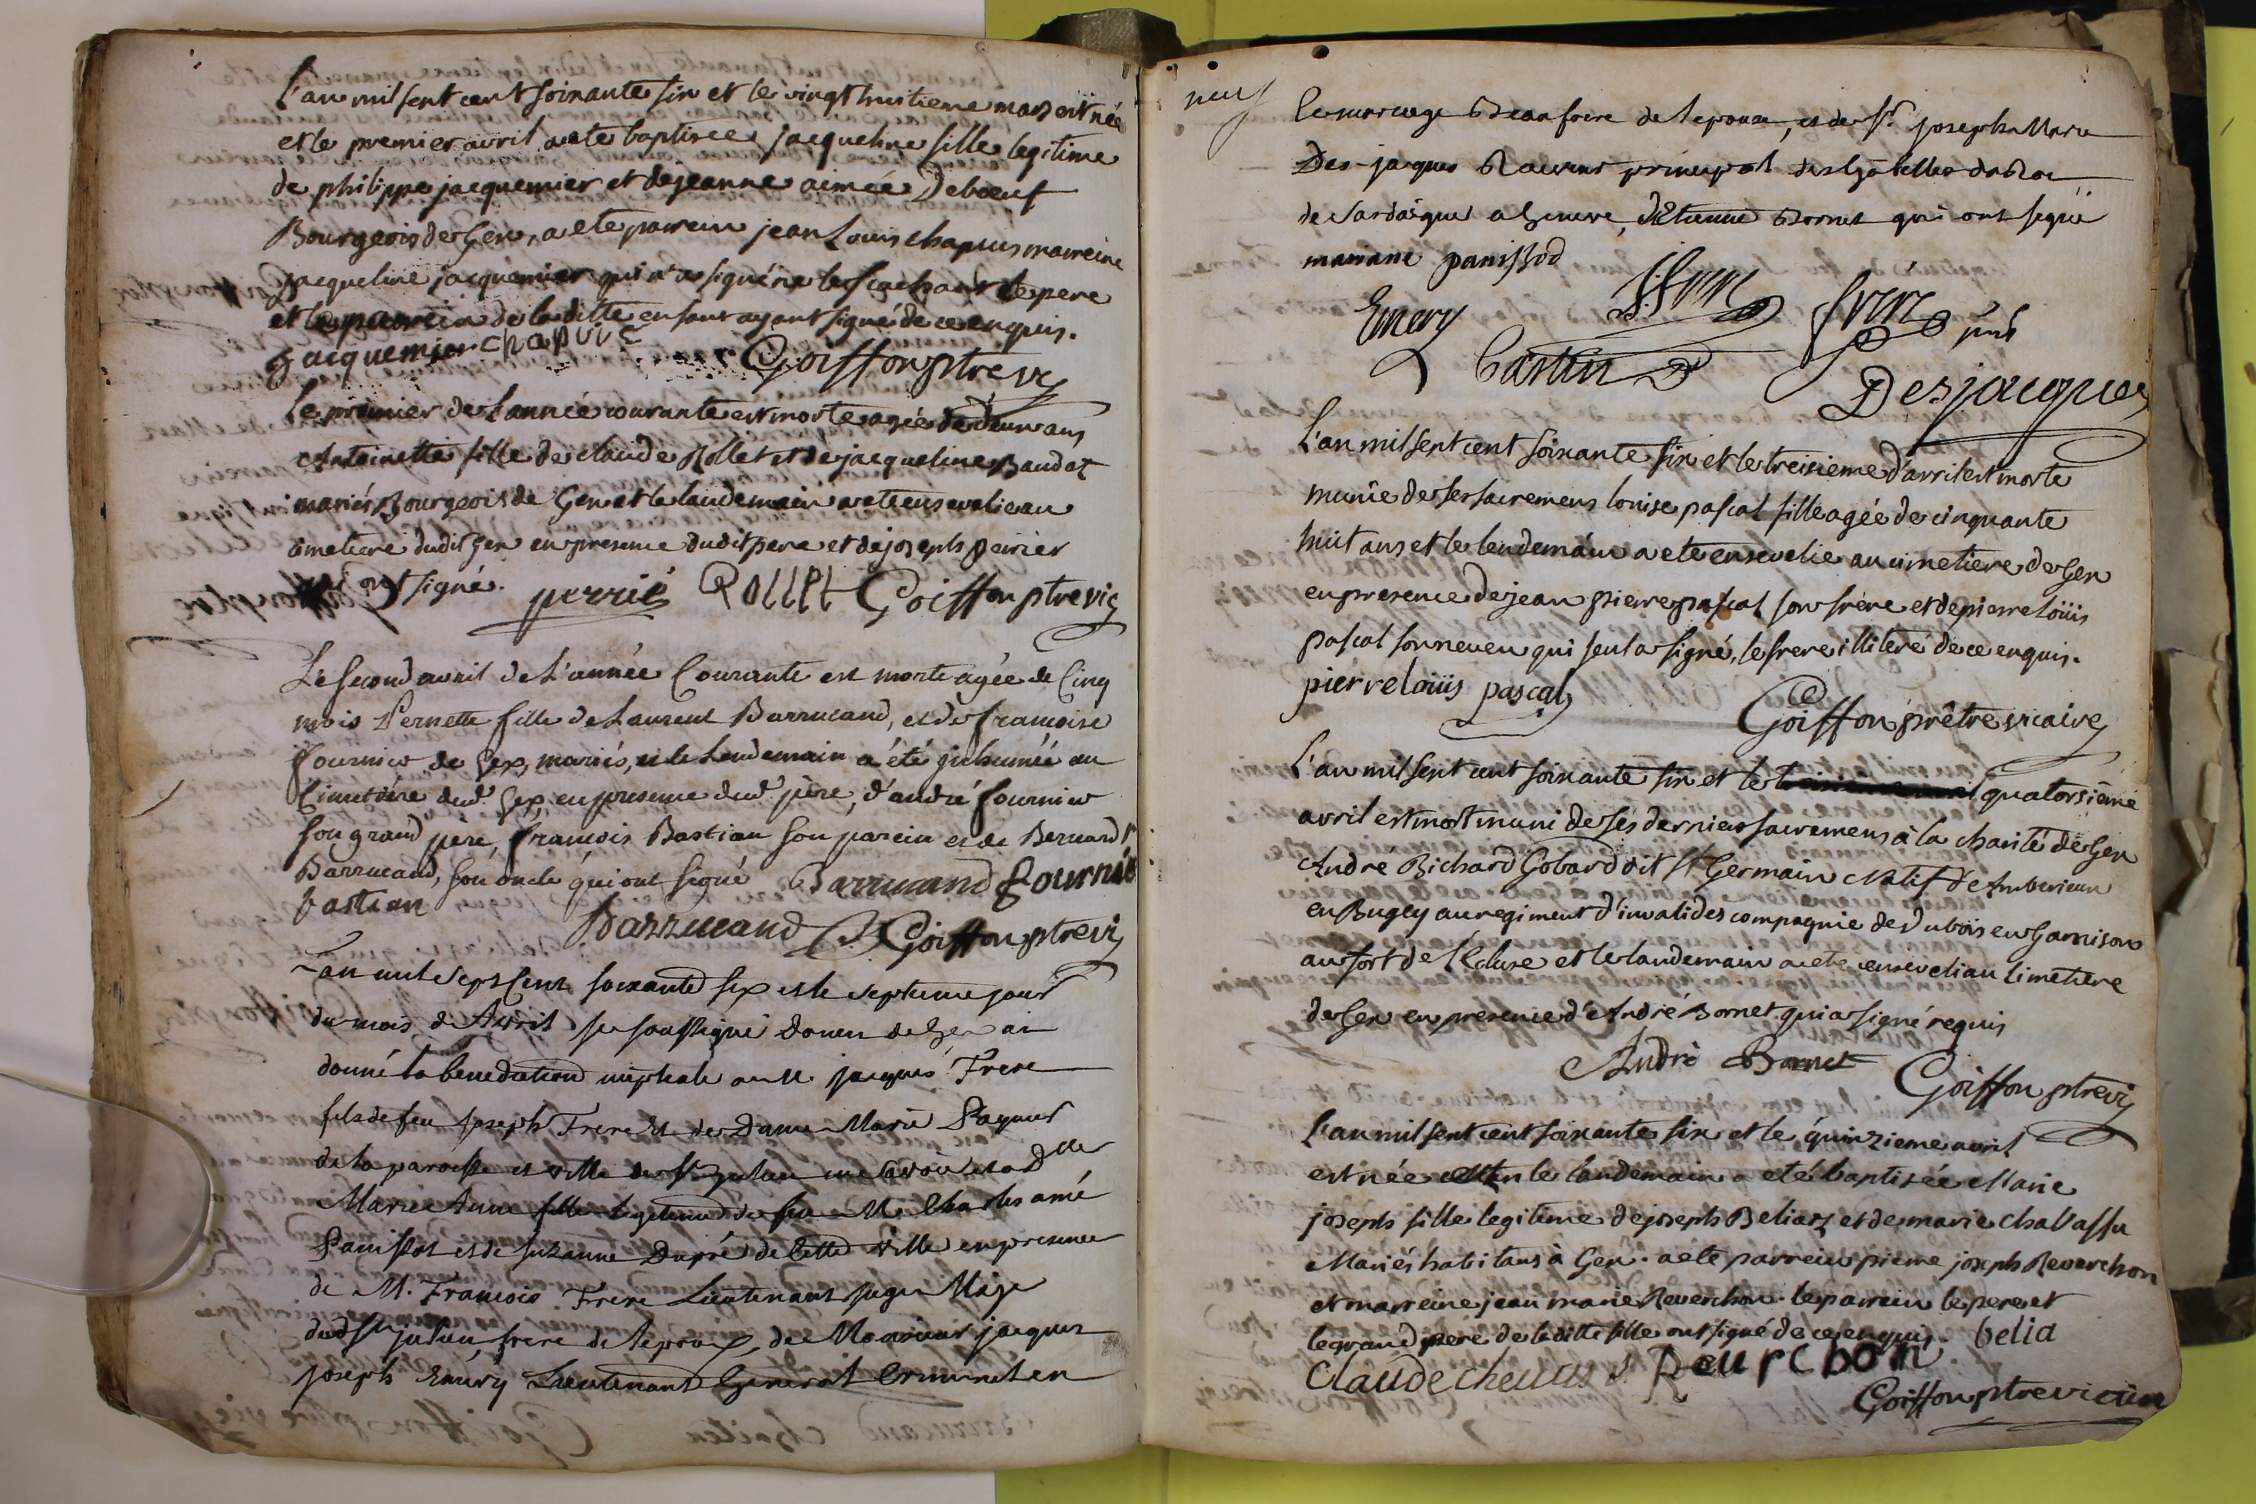 L'an mil sept cent soixante six et le vingt huitieme mars est née
et le premier avril a ete baptisée jacqueline fille legitime
de philippe jacquemier et de jeanne aimée Deboeuf
Bourgeois de Gex, a ete parrein jean Louis chapuis marreine
jacqueline jacquemier qui n'a signé ne le scachant le pere
et le parrein de la ditte enfant ayant signé de ce enquis.
Jacquemier chapuis
Goiffon ptre vic
Le premier de l'année courante est morte agée de deux ans
Antoinette fille de claude Rollet et de jacqueline Baudet
mariés Bourgeois de Gex et le landemain a ete ensevelie au
cimetiere dudit Gex en presence dudit pere et de joseph perrier
qui ont signé. perrié Rollet Goiffon ptre vic
Le second avril de l'année Courante est morte agée de Cinq
mois Pernette fille de Laurent Barrucand, et de francoise
fournier de Gex, mariés, et le Lendemain a été inhumée au
Cimetiére dud. Gex, en presence dud. père, d'andré fournier
son grand père, francois Bastian son parein et de Bernard
Barrucand, son oncle qui ont signé Barrucand fournié
bastian
Barrucand Goiffon ptre vic
L'an mil sept cent soixante six et le septieme jour
du mois d'Avril je soussigné Doyen de Gex ai
donné la benediction nuptiale a M. jacques Frere
fils de feu joseph Frere et de Dame Marie
de la paroisse et ville de St julien en Savoie et a Dlle
Marie Anne fille legitime de feu M. Charles amé
Panissod et de Suzanne Dupré de Cette ville en presence
de M. Francois Frere Lieutenant juge Maje
dud St julien, frere de l'epoux, de Monsieur jacques
joseph Emery Lieutenant General Criminel en
neuf
Beaufrere de l'epouse, et de Sr. joseph Marie
Des-jacques principal des gabelles du Roi
de Sardaigne a Geneve, d'Etienne Bornet qui ont signé
mariane panissod
Emery frere frere
Castin
Desjacques
L'an mil sept cent soixante six et le treisieme d'avril est morte
munie de ses sacremens louise pascal fille agée de cinquante
huit ans et le lendemain a ete ensevelie au cimetiere de Gex
en presence de jean pierre pascal son frère et de pierre loüis
pascal son neveu qui seul a signé, le frere illiteré de ce enquis.
pierre loüis pascal
Goiffon prêtre vicaire
L'an mil sept cent soixante six et le quatorsieme
avril est mort muni de ses derniers sacremens à la charité de Gex
André Richard Gobard dit St Germain Natif d'Amberieux
en Bugey au regiment d'invalides compagnie de Dubois en Garnison
au fort de l'Ecluse et le landemain a ete enseveli au Cimetiere
de Gex en présence d'André Bornet qui a signé requis
André Bornet Goiffon ptre vic
L'an mil sept cent soixante six et le quinzieme avril
est née et le landemain a eté baptisée Marie
joseph fille legitime de joseph Beliaz et de marie chavassu
Mariés habitans à Gex. a ete parrein pierre joseph Reverchon
et marreine jean marie Reverchon. le parrein le pere et
le grand pere de la ditte fille ont signé de ce enquis. belia
Claude Reurchon
Goiffon ptre vicaire